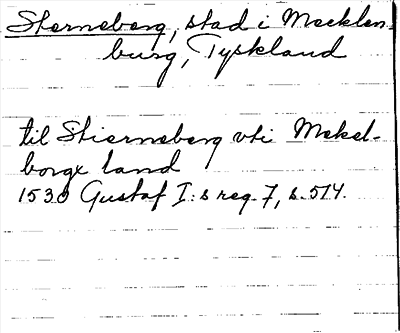 Sterneberg, stad i Mecklen-
burg, Tyskland
til Stierneberg vti Mekel-
borgx land
1530 Gustaf I:s reg. 7, s. 514.